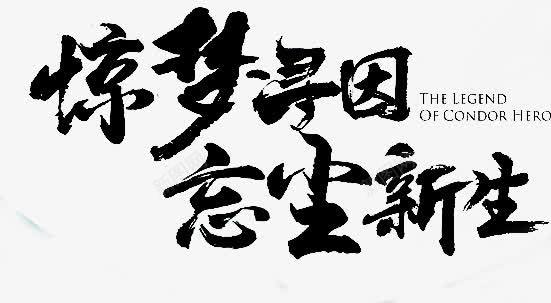 惊梦寻因
THE LEGEND
OF CONDOR HERO
忘尘新生